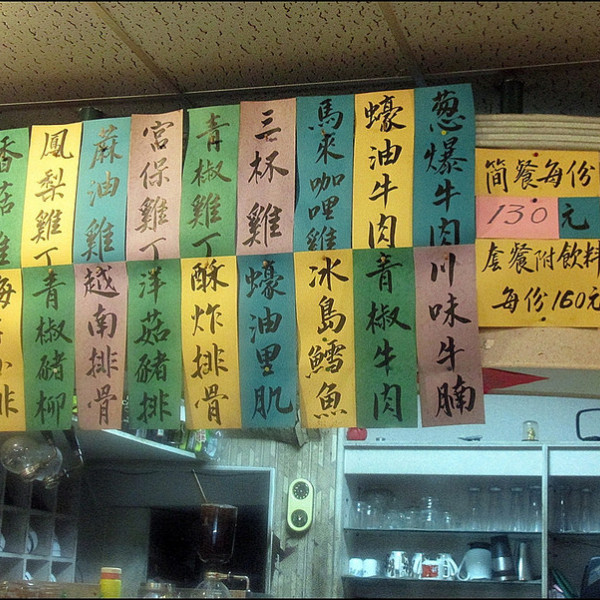 香菇雞
鳳梨雞丁
蔴油雞
宮保雞丁
青椒雞丁
三杯雞
馬來咖哩雞
蠔油牛肉
葱爆牛肉
青椒豬柳
越南排骨
洋菇豬排
酥炸排骨
蠔油里肌
冰島鱈魚
青椒牛肉
川味牛腩
簡餐每份
130元
套餐附飲料
每份160元